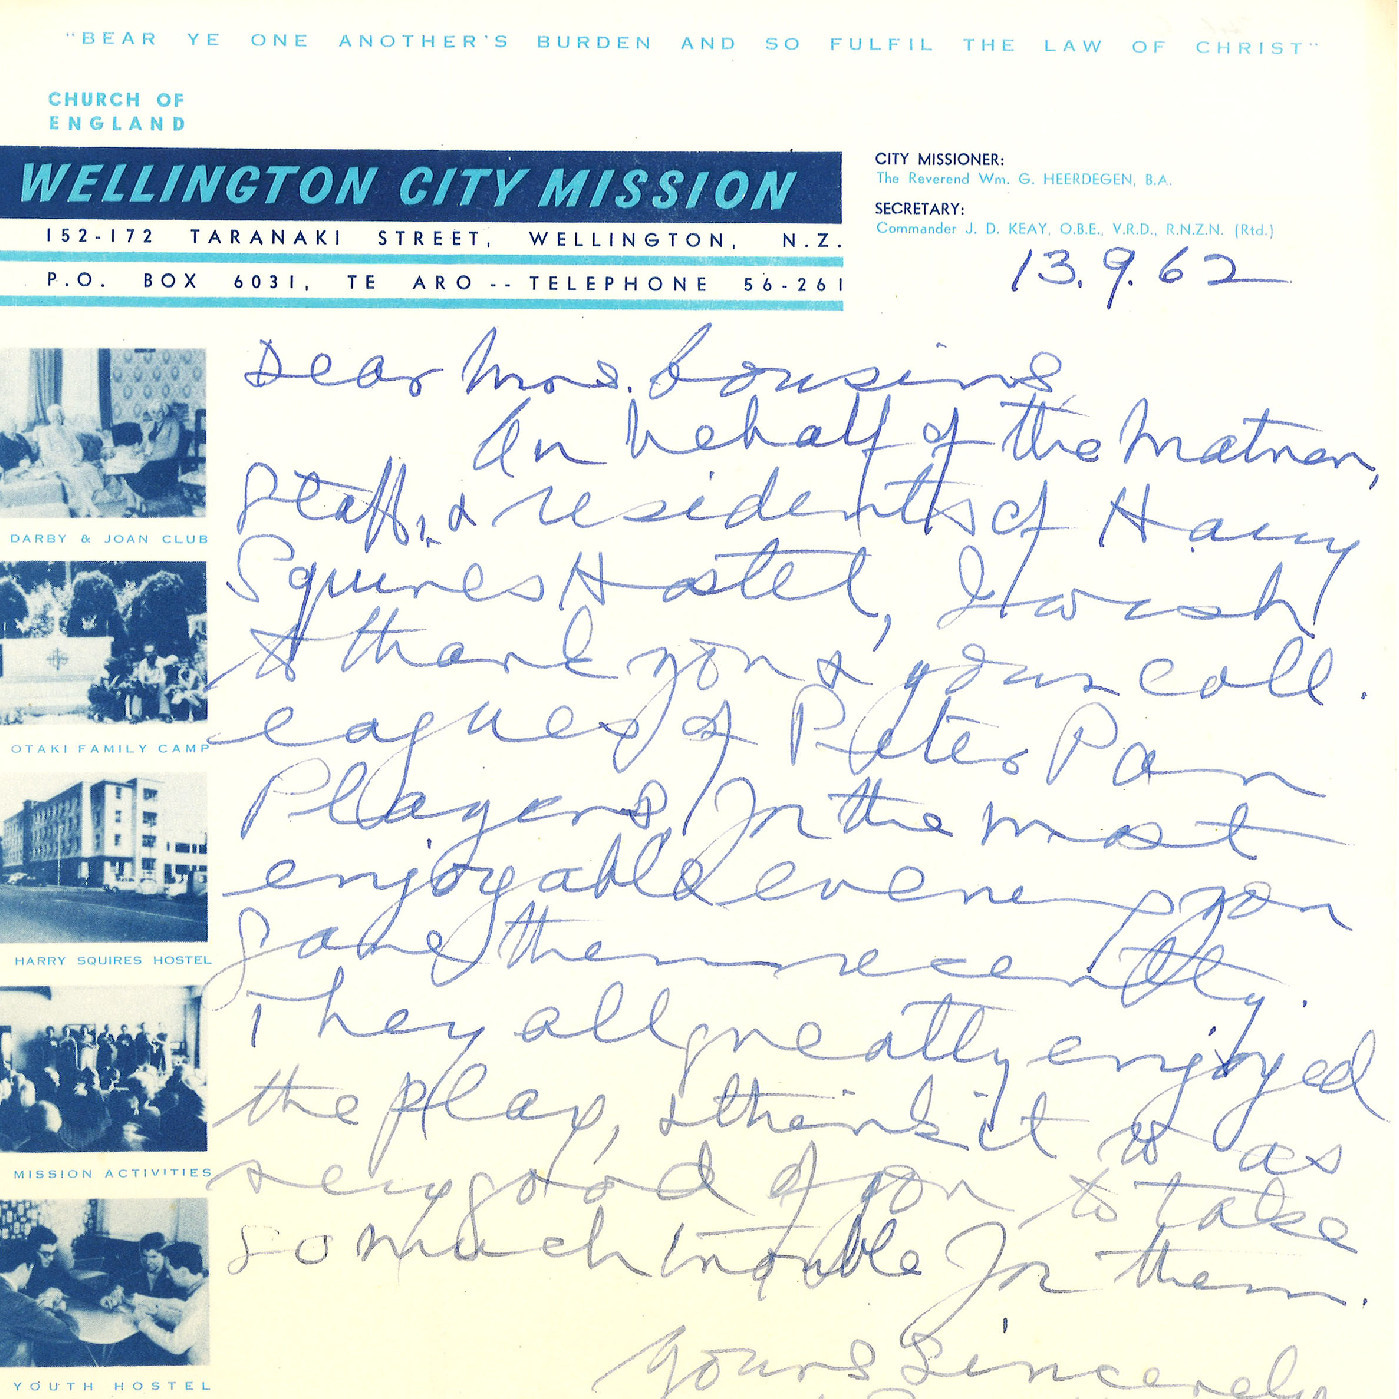 "BEAR YE ONE ANOTHER'S BURDEN AND SO FULFIL THE LAW OF CHRIST"
CHURCH OF
ENGLAND
WELLINGTON CITY MISSION
152-172 TARANAKI STREET, WELLINGTON, N.Z.
P.O. BOX 6031, TE ARO -- TELEPHONE 56-261
CITY MISSIONER:
The Reverend Wm. G. HEERDEGEN, B.A.
SECRETARY:
Commander J. D. KEAY, O.B.E., V.R.D., R.N.Z.N. (Rtd.)
13.9.62
Dear Mrs. Cousins,
On behalf of the Matron,
Staff, & residents of Harry
Squires Hostel, I wish
to thank you & your coll.
eagues of Peter Pan
Players, for the most
enjoyable evening you
gave them recently.
They all greatly enjoyed
the play, & think it was
very good of you to take
so much trouble for them.
Yours sincerely
DARBY & JOAN CLUB
OTAKI FAMILY CAMP
HARRY SQUIRES HOSTEL
MISSION ACTIVITIES
YOUTH HOSTEL